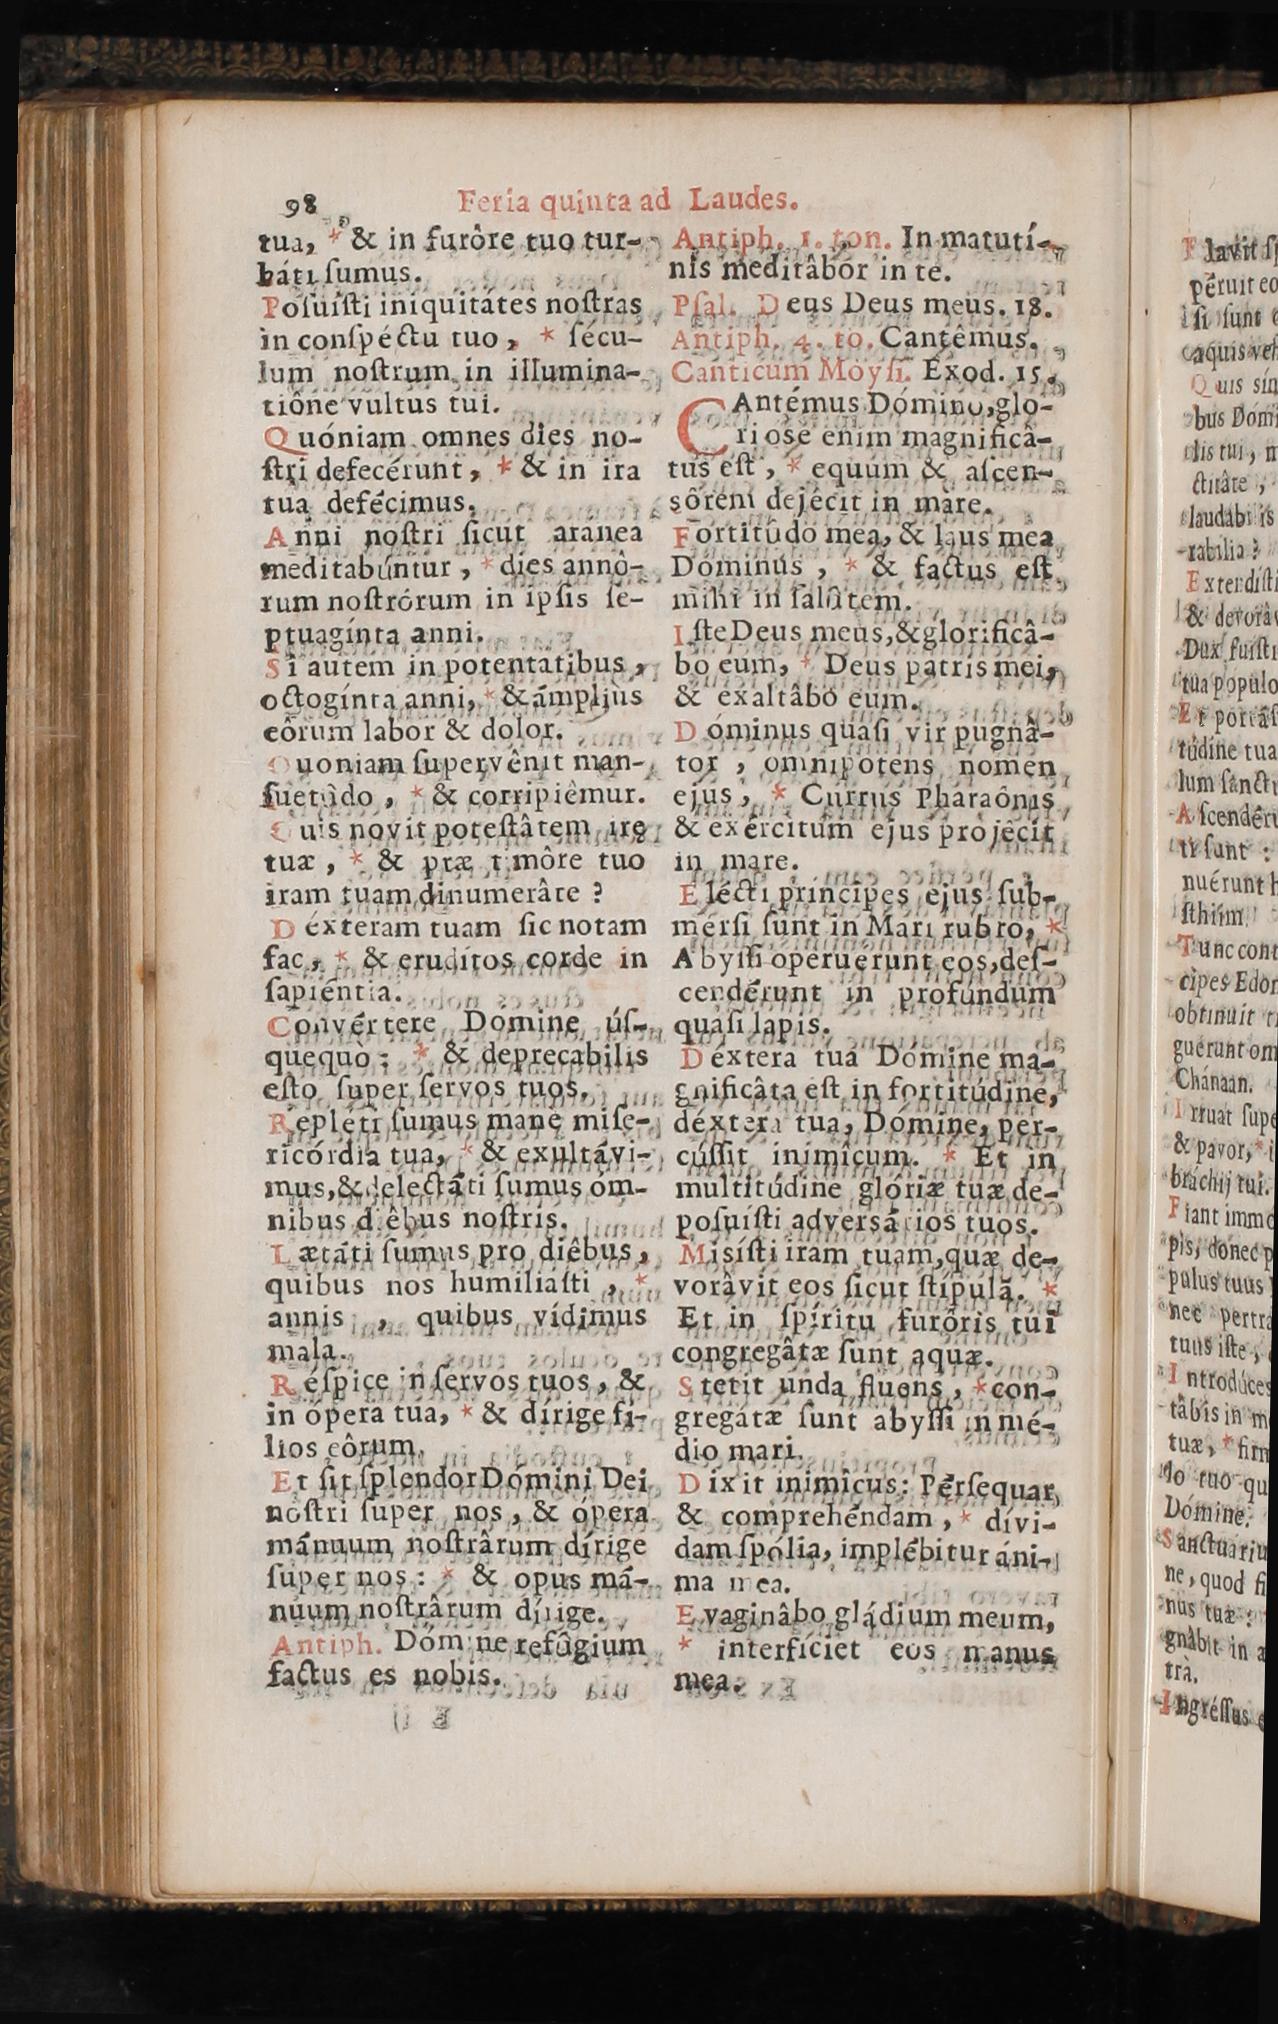 98 Feria quinta ad Laudes.
tua, * & in furôre tuo tur-
báti sumus.
Posuisti iniquitátes nostras
in conspéctu tuo, * sécu-
lum nostrum in illumina-
tiône vultus tui.
Quóniam omnes dies no-
stri defecérunt, * & in ira
tua defécimus.
Anni nostri sicut aránea
meditabúntur, * dies annô-
rum nostrórum in ipsis se-
ptuagínta anni.
Si autem in potentatibus,
octogínta anni, * & ámplius
eôrum labor & dolor.
Quoniam supervênit man-
suetûdo, * & corripiêmur.
Quis novit potestâtem iræ
tuæ, * & præ timôre tuo
iram tuam dinumerâte ?
Déxteram tuam sic notam
fac, * & erudítos corde in
sapiéntia.
Convértere Domine ús-
quequò: * & deprecabilis
esto super servos tuos.
Repléti sumus mane mise-
ricórdia tua, * & exultávi-
mus, & delectáti sumus óm-
nibus diêbus nostris.
Lætáti sumus pro diêbus,
quibus nos humiliasti, *
annis, quibus vídimus
mala.
Réspice in servos tuos, &
in ópera tua, * & dírige fi-
lios eôrum.
Et sit splendor Dómini Dei
nostri super nos, & ópera
mánuum nostrârum dírige
super nos: * & opus má-
nuum nostrârum dírige.
Antiph. Dómine refûgium
factus es nobis.
Antiph. 1. ton. In matutí-
nis meditâbor in te.
Psal. Deus Deus meus. 18.
Antiph. 4. to. Cantêmus.
Canticum Moysi. Exod. 15.
CAntémus Dómino, glo-
riose enim magnificâ-
tus est, * equum & ascen-
sôrem dejécit in mare.
Fortitûdo mea, & laus mea
Dóminus, * & factus est
mihi in salûtem.
Iste Deus meus, & glorificâ-
bo eum, * Deus patris mei,
& exaltâbo eum.
Dóminus quasi vir pugnâ-
tor, omnípotens nomen
ejus, * Currus Pharaônis
& exércitum ejus projécit
in mare.
Elécti príncipes ejus sub-
mérsi sunt in Mari rubro, *
Abyssi operuerunt eos, des-
cendérunt in profúndum
quasi lapis.
Déxtera tua Dómine ma-
gnificâta est in fortitúdine,
déxtera tua, Dómine, per-
cússit inimîcum. * Et in
multitúdine glóriæ tuæ de-
posuísti adversários tuos.
Misísti iram tuam, quæ de-
vorâvit eos sicut stípula. *
Et in spíritu furôris tui
congregâtæ sunt aquæ.
Stetit unda fluens, * con-
gregátæ sunt abyssi in mé-
dio mari.
Dixit inimîcus: Pérsequar
& comprehéndam, * dívi-
dam spólia, implébitur áni-
ma mea.
Evaginâbo gládium meum,
* interfíciet eos manus
mea.